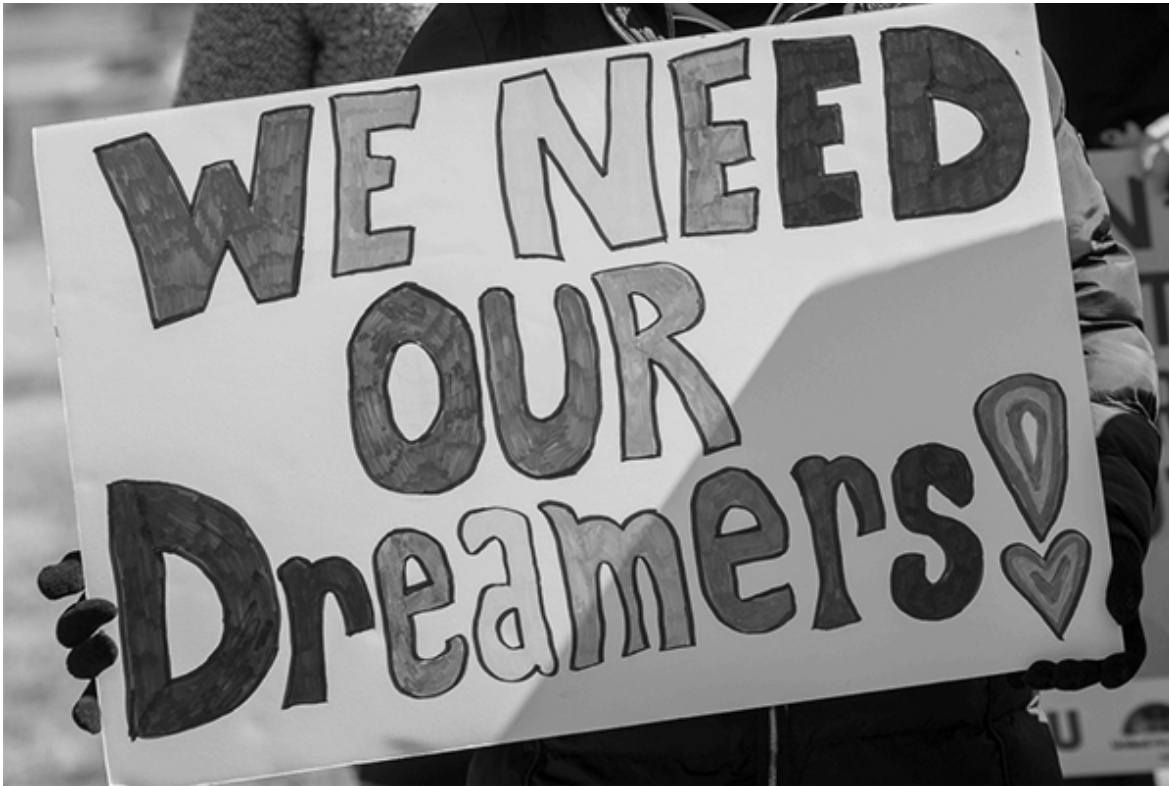 WE NEED
OUR
Dreamers!
U